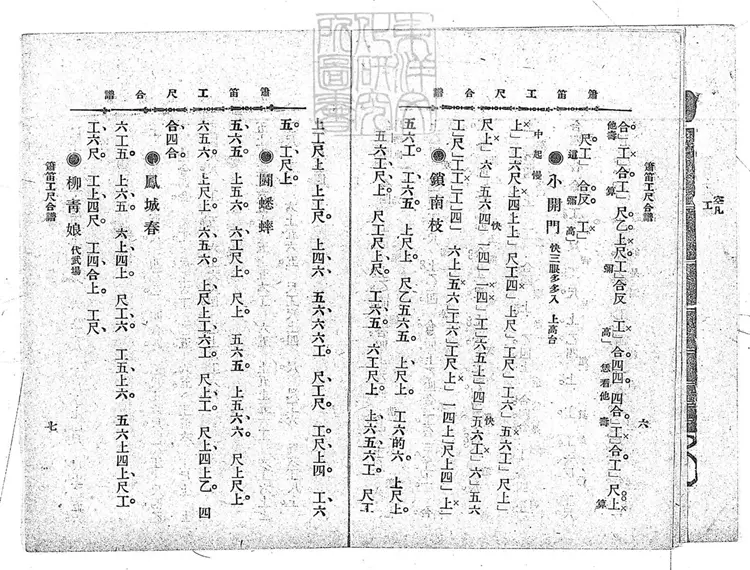 空凡
工
簫笛工尺合譜
簫笛工尺合譜
六
合」工」合工」尺乙上尺工」合反 工」合四四。四合」工」合工」尺上
他壽 算 彌 高」 恁看他 壽 算
尺工 合反 工」
這 彌 高」
小開門 快三眼多多入 上高台
中起慢
上」工六尺上四上上」尺工四」上尺」工尺」工六」五六工」尺上」
快
尺上」六」五六四」一四」一四」工」六五上」四」五六工」六」五六
快
工」尺」工」工」四」 六上」五六」工六」工尺上」一四上尺上四」上」
鎖南枝
五六工。 工六五。 上尺上。 尺乙五六五。 上尺上。 工六的六 上尺上。
五六工尺上尺。 工尺上尺。 工六五。 六工尺上。 上六五六工。 尺工
簫笛工尺合譜
上工尺上 上工尺。 上四六 五六六六工。 尺工尺。 工尺上四。 工六
五。 工尺上
鬪蟋蟀
五六五。 上五六。 六工尺上。 尺上。 五六五。 上五六六。 尺上尺上
六五六。 上尺上。 六五六。 上尺上工六工。 尺上工。 尺上四上乙。 四
合四合。
鳳城春
六工五 上六五。 六上四上 尺工六。 工五上六。 五六上四上尺工。
工六尺。 工上四尺。 工四合上。 工尺。
柳青娘 代武場
簫笛工尺合譜
七